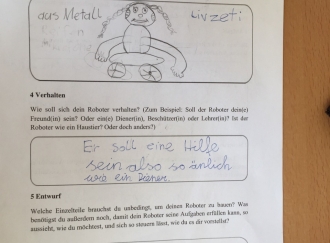 aus Metall Livzeti
4 Verhalten
Wie soll sich dein Roboter verhalten? (Zum Beispiel: Soll der Roboter dein(e)
Freund(in) sein? Oder ein(e) Diener(in), Beschützer(in) oder Lehrer(in)? Ist der
Roboter wie ein Haustier? Oder doch anders?)
Er soll eine Hilfe
sein also so änlich
wie ein Diener.
5 Entwurf
Welche Einzelteile brauchst du unbedingt, um deinen Roboter zu bauen? Was
benötigst du außerdem noch, damit dein Roboter seine Aufgaben erfüllen kann, so
aussieht, wie du möchtest, und sich so steuern lässt, wie du es dir vorstellst?